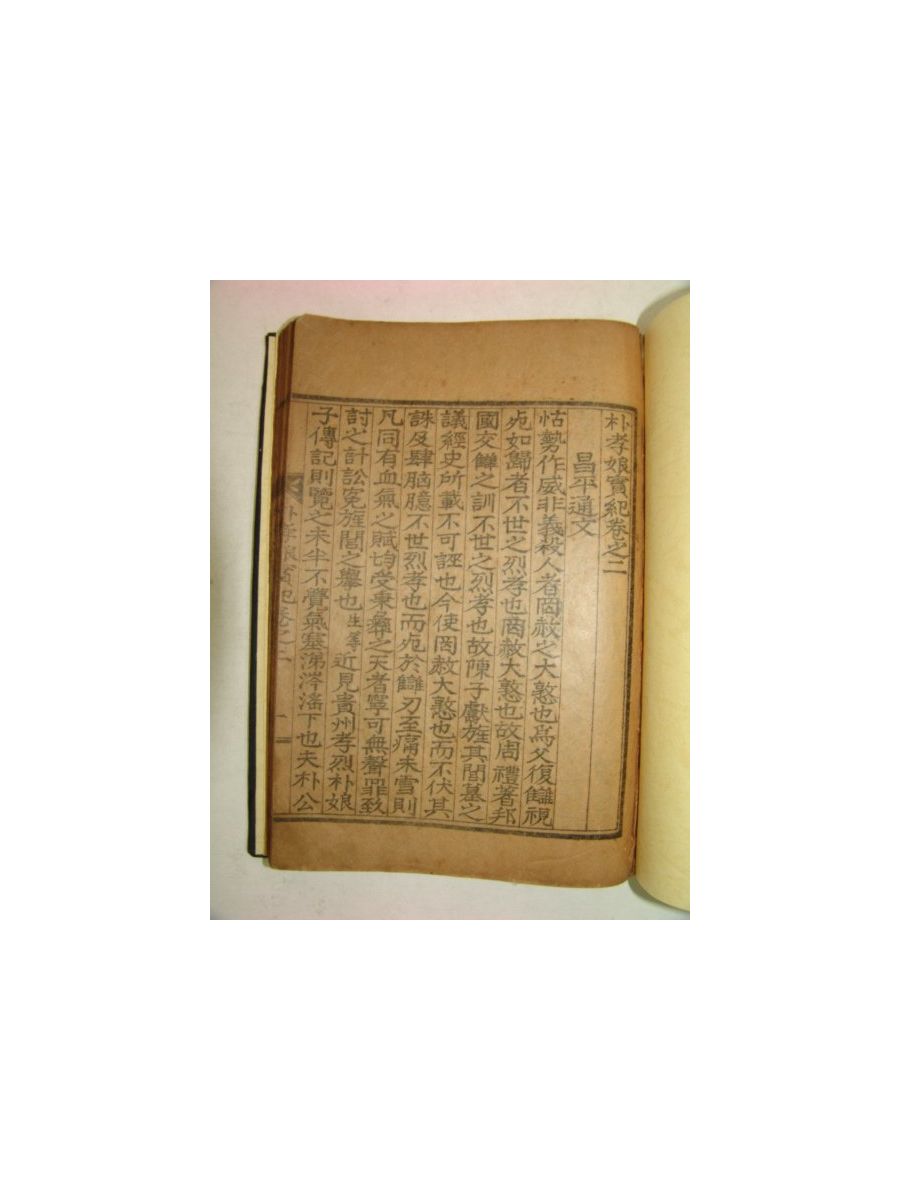 朴孝娘實紀卷之二
昌平通文
怙勢作威非義殺人者罔赦之大憝也爲父復讎視
死如歸者不世之烈孝也罔赦大憝也故周禮著邦
國交讎之訓不世之烈孝也故陳子獻旌其閭墓之
議經史所載不可誣也今使罔赦大憝也而不伏其
誅及肆脑臆不世烈孝也而死於讎刃至痛未雪則
凡同有血氣之賦均受秉彝之天者寧可無聲罪致
討之計訟冤旌閭之擧也生等近見貴州孝烈朴娘
子傳記則覽之未半不覺氣塞涕涔滛下也夫朴公
朴孝娘實紀卷之二
一